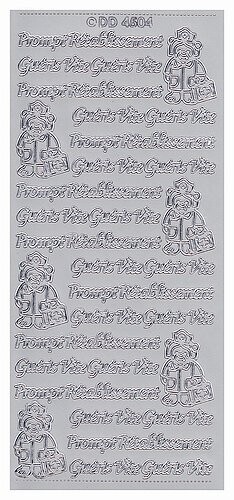 © DD 4604
Prompt Rétablissement
Guéris Vite Guéris Vite
Prompt Rétablissement
Guéris Vite Guéris Vite
Prompt Rétablissement
Guéris Vite Guéris Vite
Prompt Rétablissement
Guéris Vite Guéris Vite
Prompt Rétablissement
Guéris Vite Guéris Vite
Prompt Rétablissement
Guéris Vite Guéris Vite
Prompt Rétablissement
Guéris Vite Guéris Vite
Prompt Rétablissement
Guéris Vite Guéris Vite
Prompt Rétablissement
Guéris Vite Guéris Vite